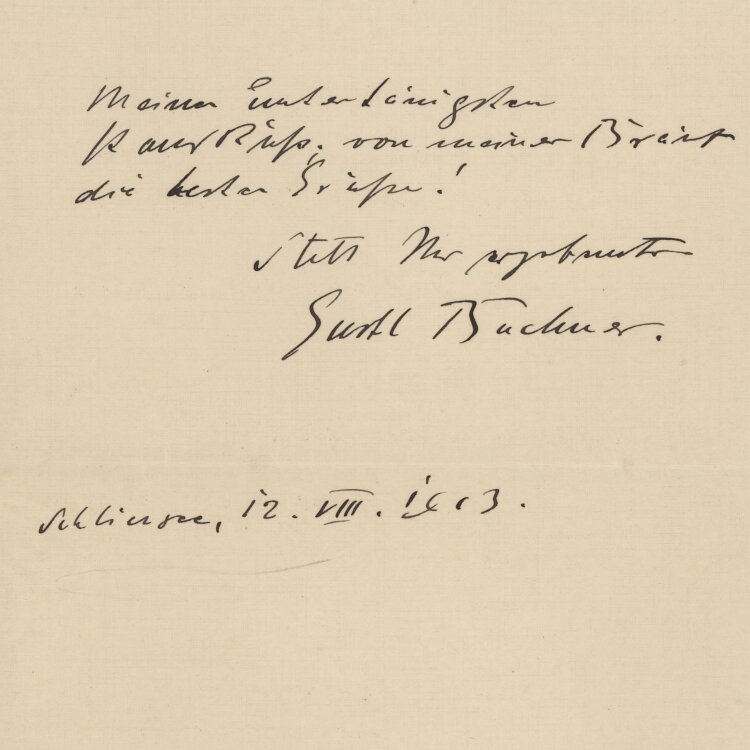 Meinen Euntertänigsten
Handkuß, von meiner Braut
die besten Grüße!
Stets Ihr ergebenster
Gustl Büchner.
Schliersee, 12. VIII. 1903.